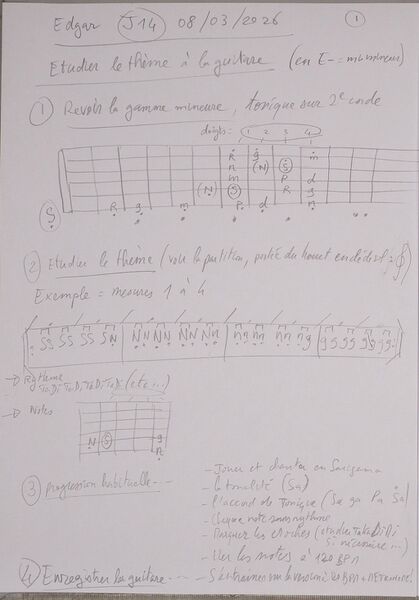 Edgar J14 08/03/2026 1
Etudier le thème à la guitare (en E- = mi mineur)
1 Revoir la gamme mineure, tonique sur 2e corde
doigts = 1 2 3 4
R g m
n (N) Ṡ
m P d
(N) S R g
S R g m P d n
2 Etudier le thème (voir la partition, portée du haut en clé de sol =
Exemple = mesures 1 à 4
SS SS SS SN NN NN NN NN nn nn nn ng gg gg gg gg
→ Rythme
TaDi TaDi TaDi TaDi (etc...)
→ Notes
N S g
n
3 progression habituelle...
- Jouer et chanter en Sargama
- la tonalité (Sa)
- l'accord de Tonique (Sa ga Pa Ṡa)
- Chaque note sans rythme
- Marquer les croches (étudier TaKaDiMi
si nécessaire...)
- les notes à 120 BPM
4 Enregistrer la guitare... - S'entraîner 120 BPM